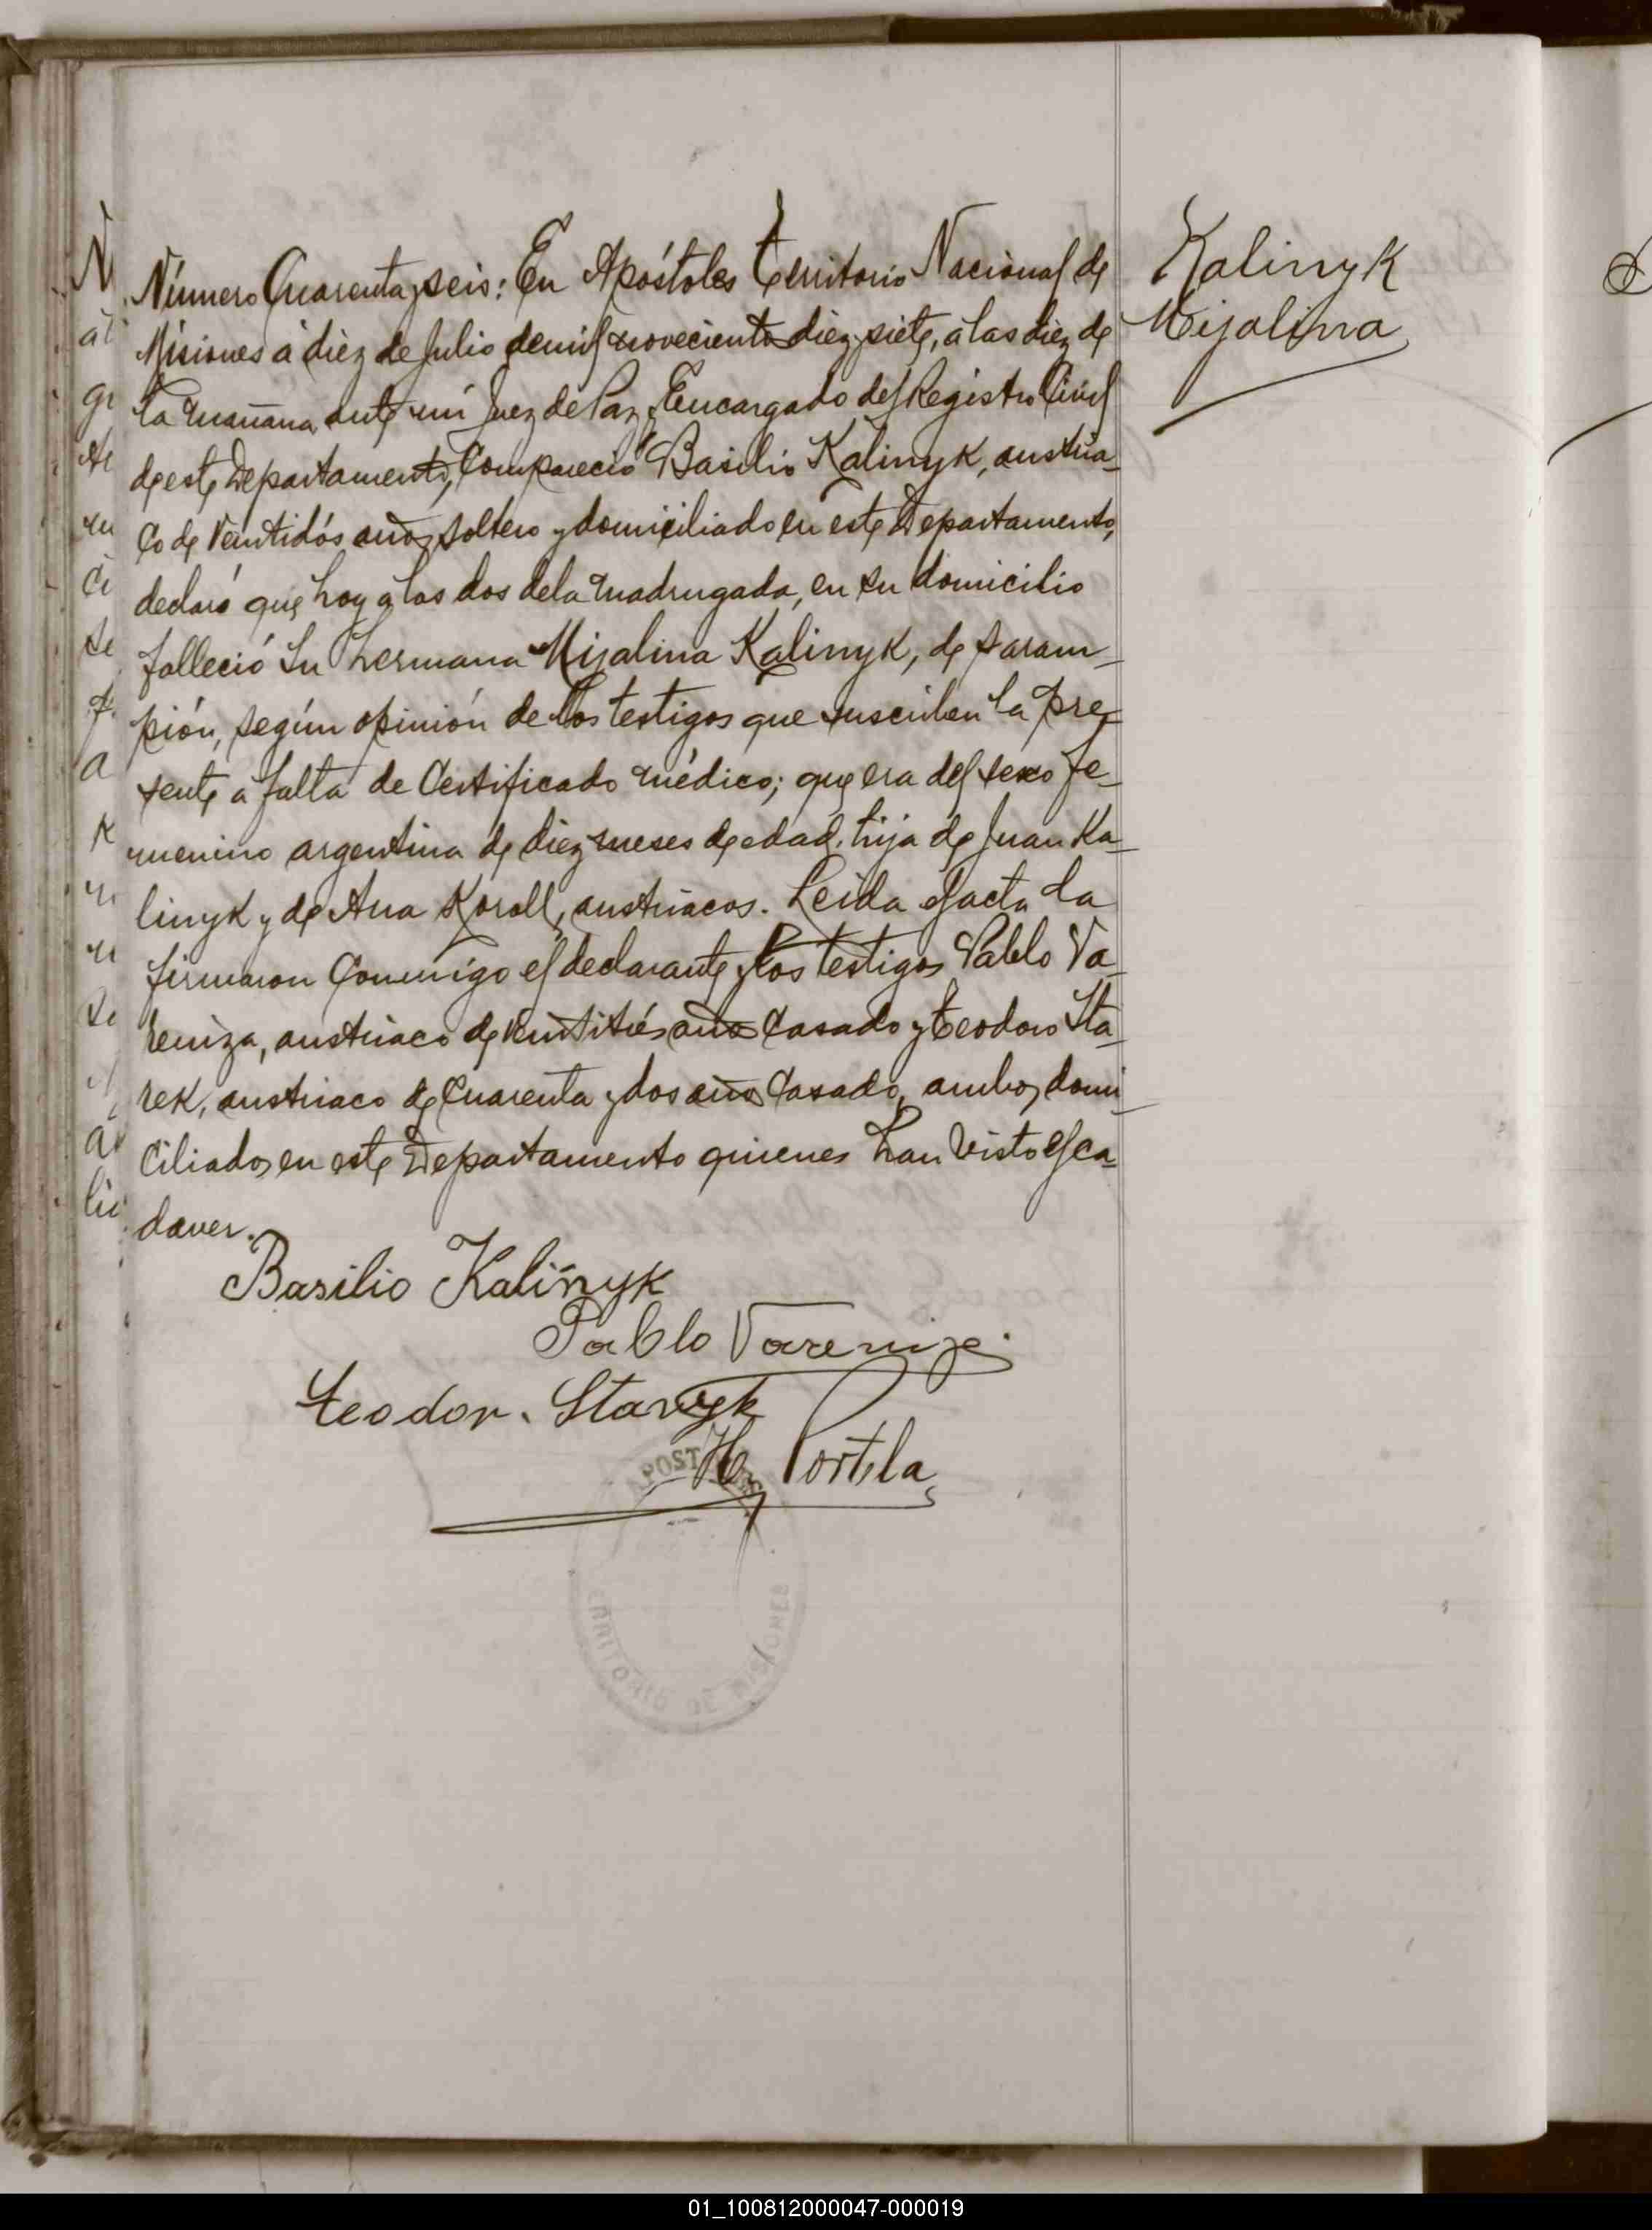 Número Cuarenta y seis: En Apóstoles Territorio Nacional de
Misiones á diez de Julio de mil novecientos diez y siete, á las diez de
la mañana, ante mí Juez de Paz y Encargado del Registro Civil
de este Departamento, Compareció Basilio Kalinyk, austria-
co de Veintidós años, soltero y domiciliado en este Departamento,
declaró que hoy a las dos de la madrugada, en su domicilio
falleció su hermana Mijalina Kalinyk, de saram-
pión, según opinión de los testigos que suscriben la pre-
sente a falta de Certificado médico; que era del sexo fe-
menino argentina de diez meses de edad, hija de Juan Ka-
linyk y de Ana Koroll, austriacos. Leida el acta la
firmaron Conmigo el declarante y los testigos Pablo Va-
reniza, austriaco de Veintitrés años Casado y Teodoro Sta-
rek, austriaco de Cuarenta y dos años Casado, ambos domi-
ciliados en este Departamento quienes han visto el ca-
daver.
Kalinyk
Mijalina
Basilio Kalinyk
Pablo Vareniza.
Teodor. Starek
H. Portela
TERRITORIO DE MISIONES
01_100812000047-000019